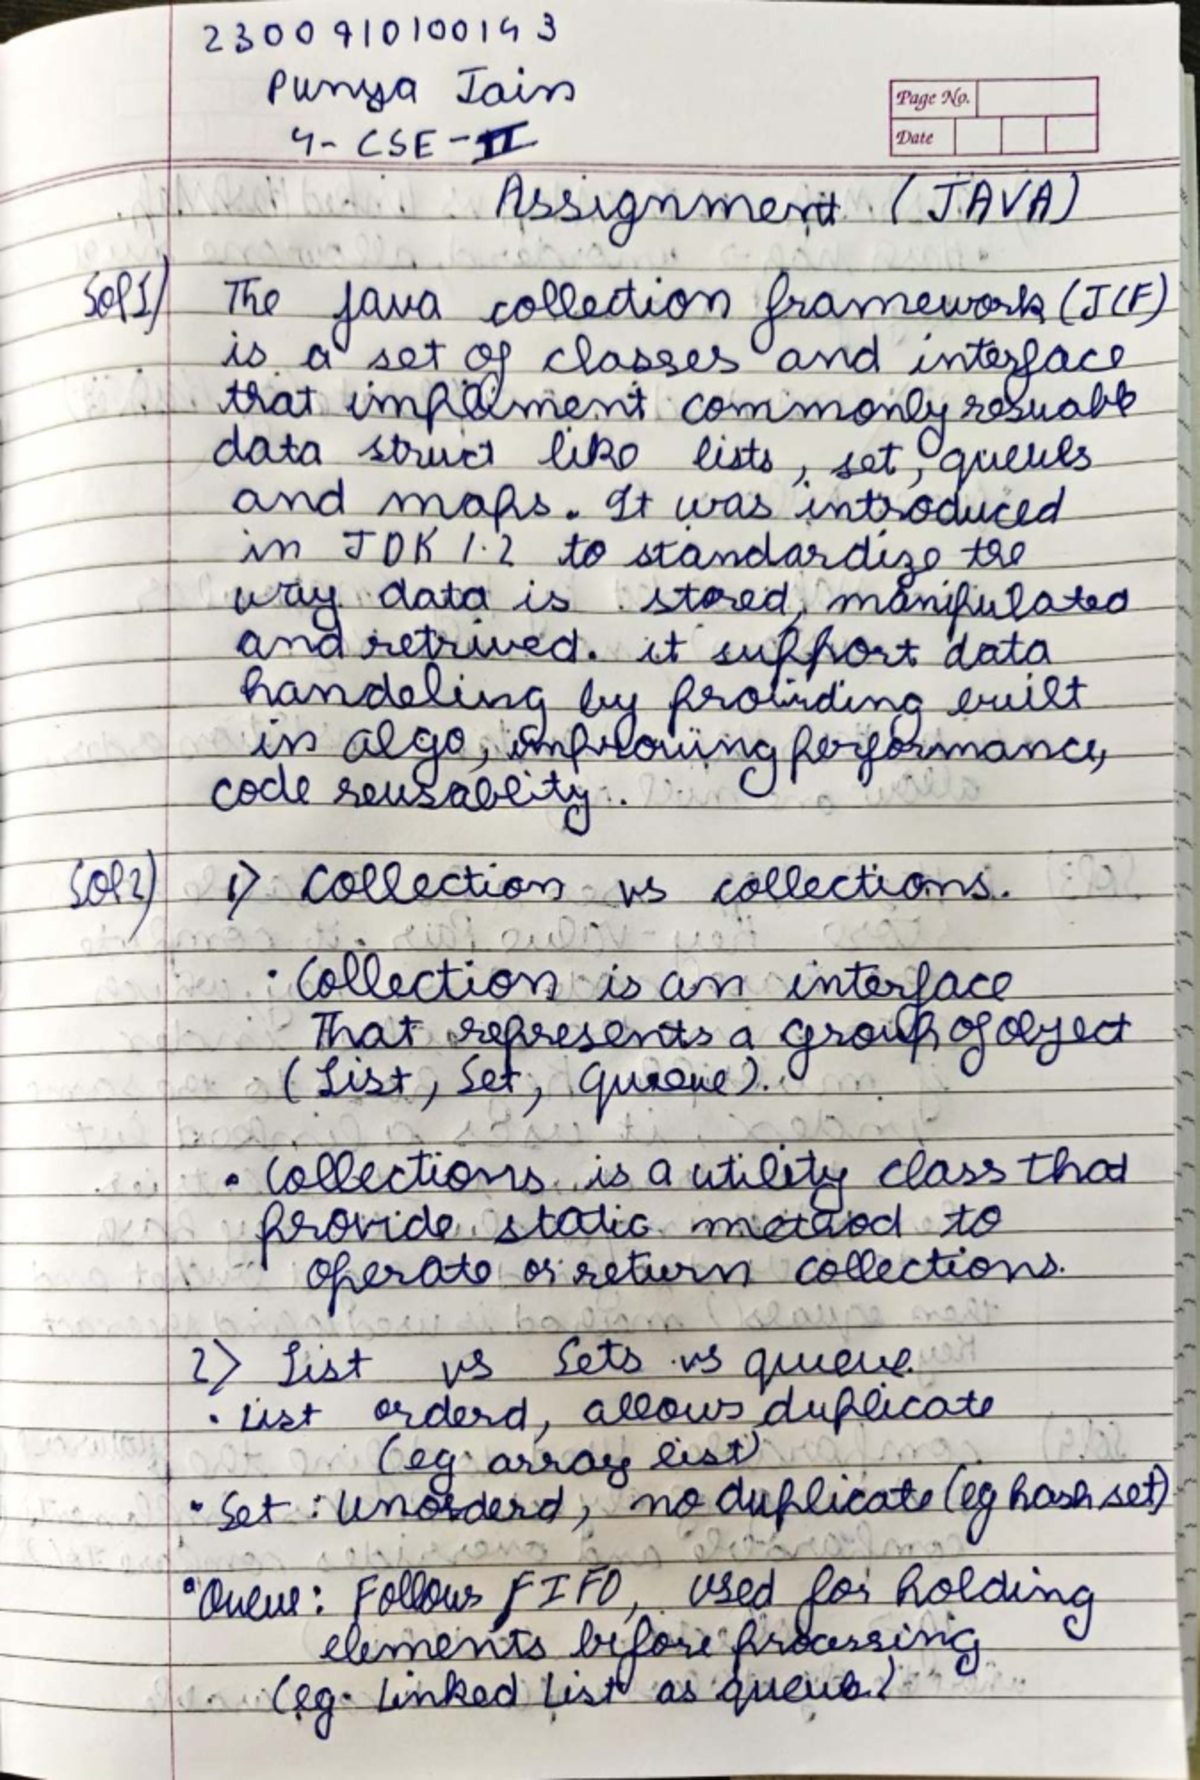 230091010014 3
Punya Jain
4- CSE-II
Page No.
Date
Assignment (JAVA)
Sol1) The Java collection framework (JCF)
is a set of classes and interface
that impliment commonly resuable
data struct like lists, set, queues
and maps. It was introduced
in JDK 1.2 to standardize the
way data is stored, manipulated
and retrived. it support data
handeling by providing built
in algo, improving performance,
code reusability.
Sol2) 1) Collection vs collections.
• Collection is an interface
That represents a group of object
(List, Set, Queue).
• Collections is a utility class that
provide static method to
operate or return collections.
2) List vs Sets vs queue.
• List orderd, allows duplicate
(eg. array list)
• Set : Unorderd, no duplicate (eg hash set)
• Queue: Follows FIFO, used for holding
elements before processing
(eg. Linked List as queue)